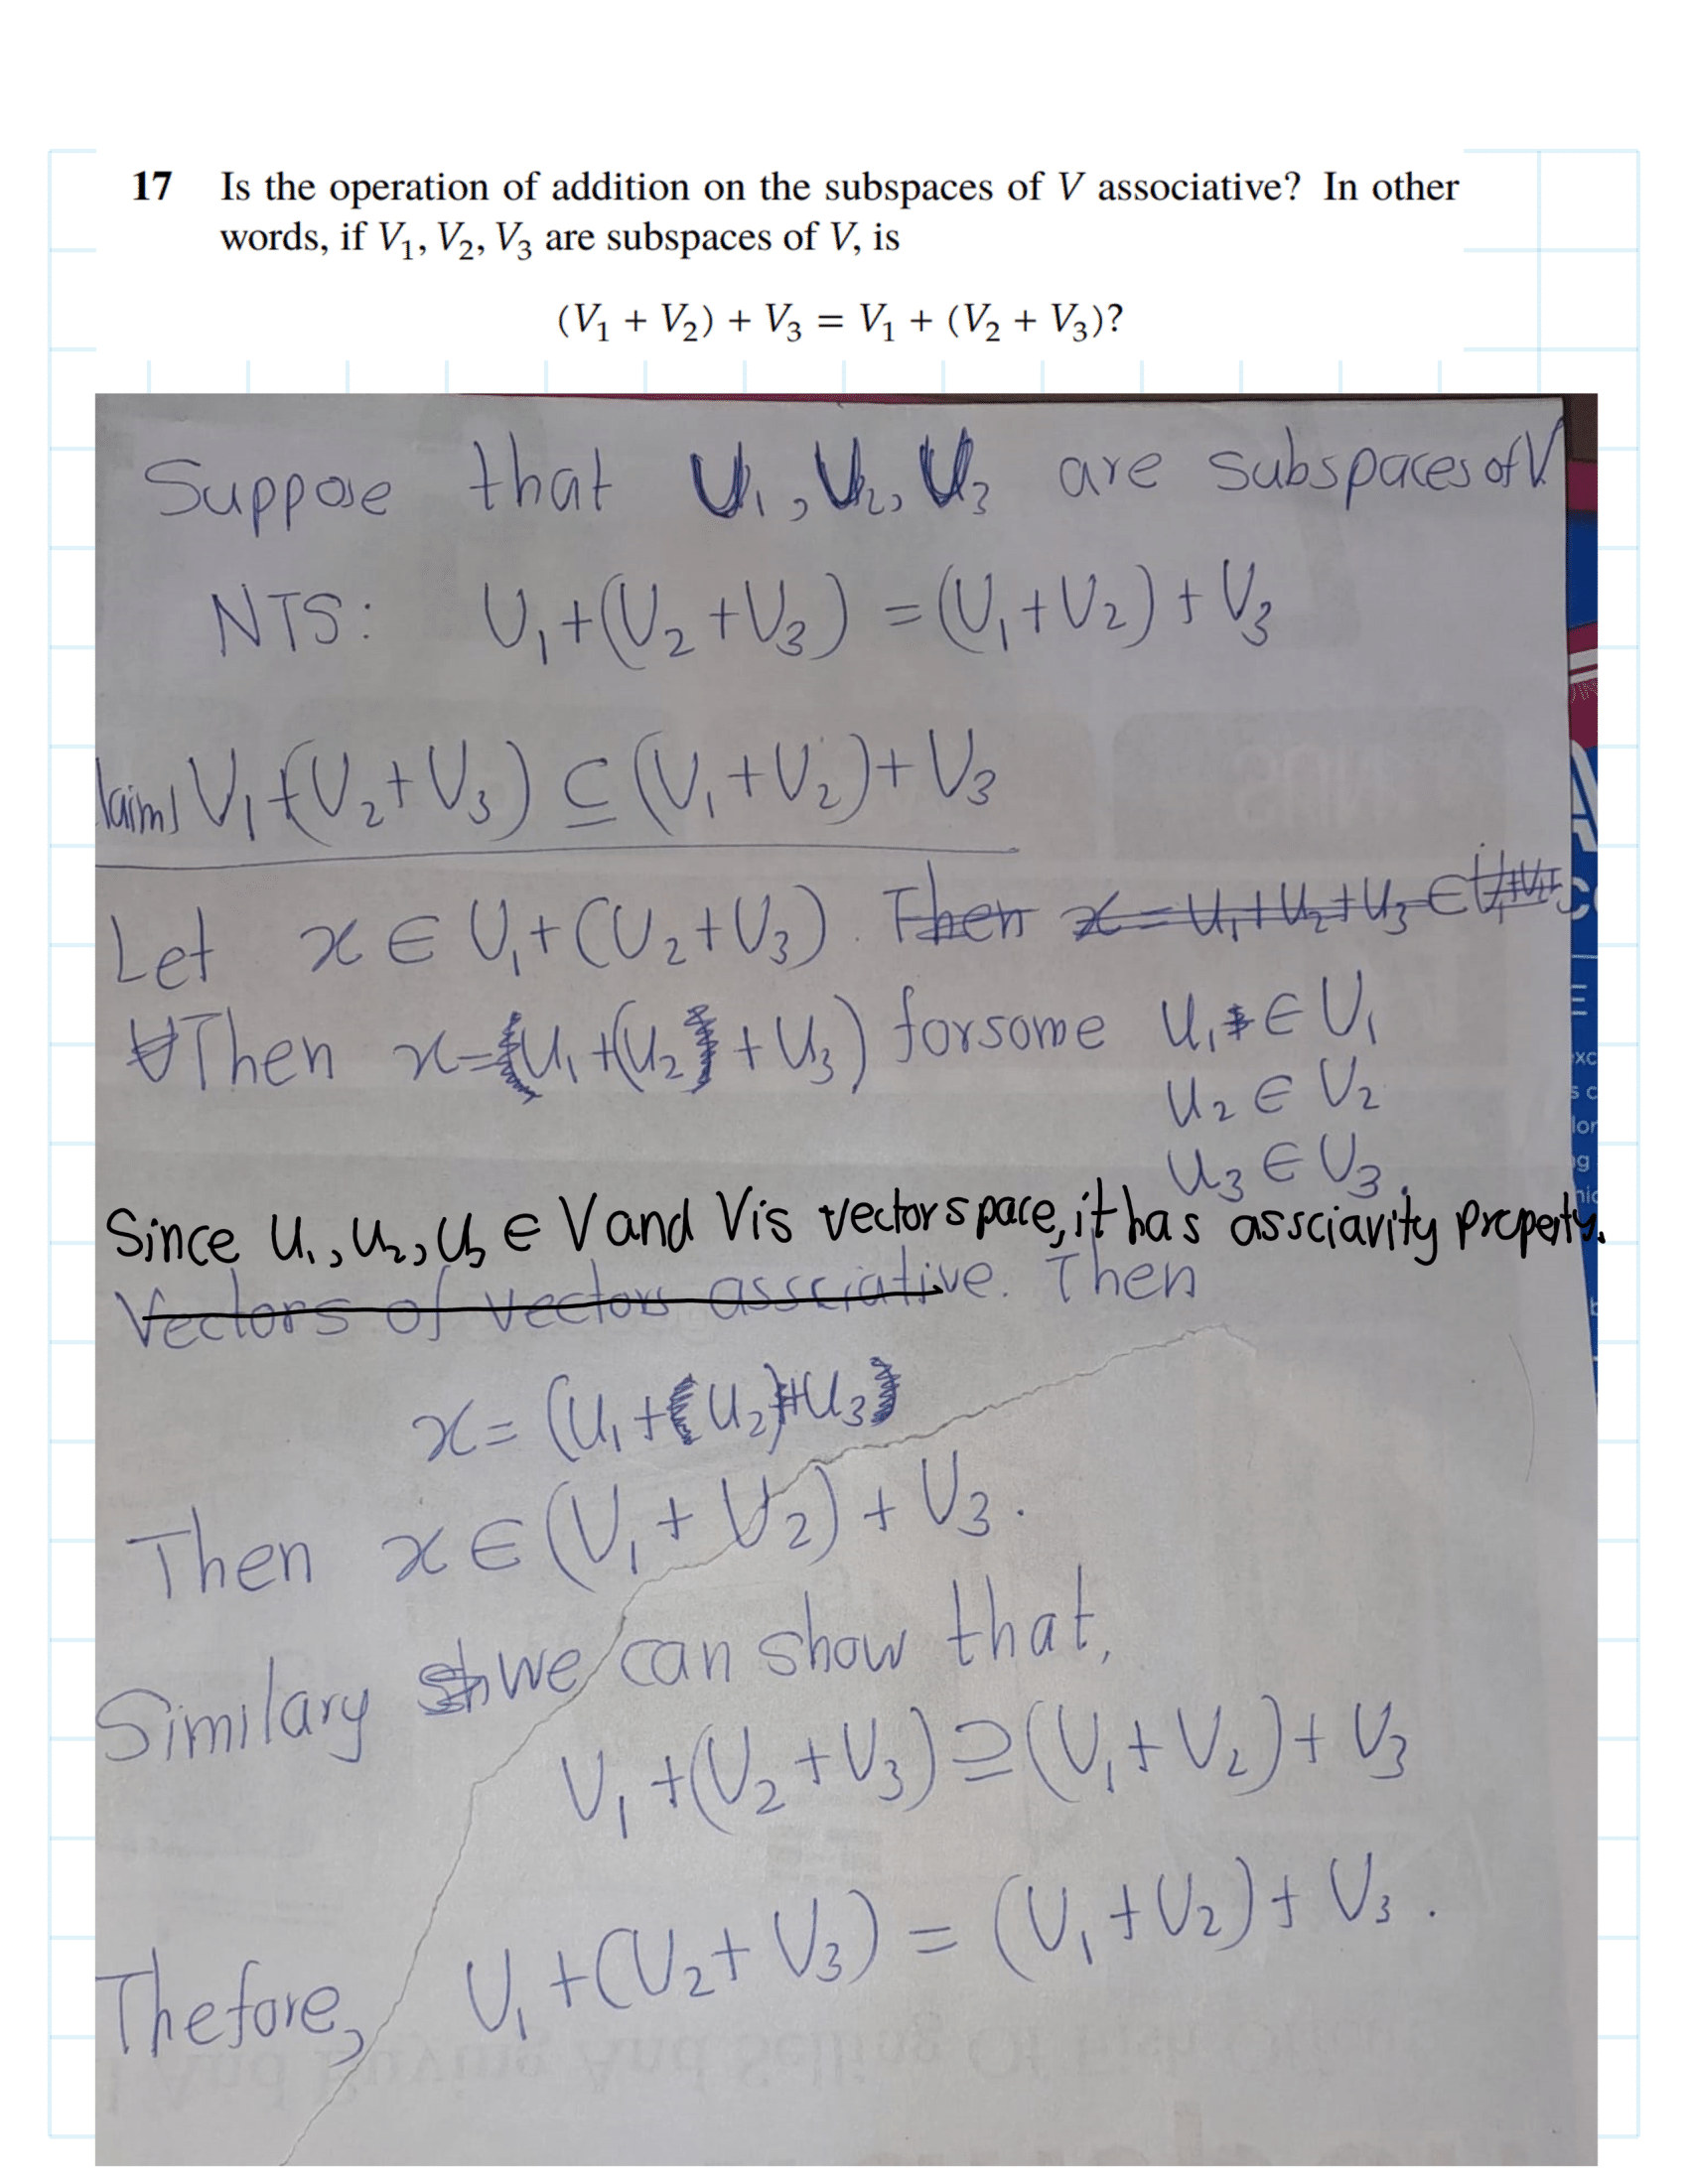 17 Is the operation of addition on the subspaces of V associative? In other
words, if V₁, V₂, V₃ are subspaces of V, is
(V₁ + V₂) + V₃ = V₁ + (V₂ + V₃)?
Suppose that U₁, U₂, U₃ are subspaces of V.
NTS: U₁+(U₂+U₃) = (U₁+U₂)+U₃
laim1 U₁+(U₂+U₃) ⊆ (U₁+U₂)+U₃
Let x ∈ U₁+(U₂+U₃). Then x = u₁+u₂+u₃ ∈
Then x = u₁+(u₂+u₃) for some u₁ ∈ U₁
u₂ ∈ U₂
u₃ ∈ U₃.
Since u₁, u₂, u₃ ∈ V and V is vector space, it has assciavity property.
Vectors of vectors assciative. Then
x = (u₁+u₂)+u₃
Then x ∈ (U₁+U₂)+U₃.
Similary we can show that,
U₁+(U₂+U₃) ⊇ (U₁+U₂)+U₃
Thefore, U₁+(U₂+U₃) = (U₁+U₂)+U₃.